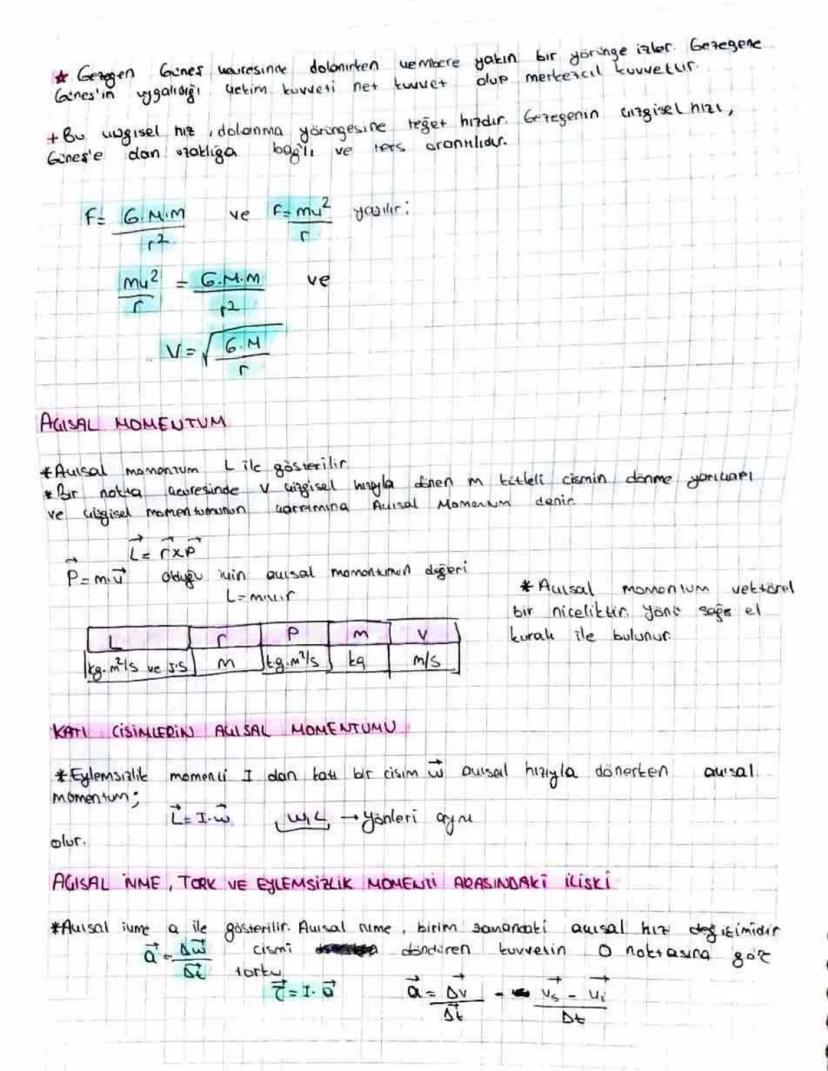 ★ Gezegen Güneş çevresinde dolanırken çembere yakın bir yörünge izler. Gezegene
Güneş'in uyguladığı çekim kuvveti net kuvvet olup merkezcil kuvvettir.
+ Bu çizgisel hız, dolanma yörüngesine teğet hızdır. Gezegenin çizgisel hızı,
Güneş'e olan uzaklığa bağlı ve ters orantılıdır.
F = G.M.m / r² ve F = mv² / r yazılır;
mv² / r = G.M.m / r² ve
V = √(G.M / r)
AÇISAL MOMENTUM
* Açısal momentum L ile gösterilir
* Bir nokta çevresinde V çizgisel hızıyla dönen m kütleli cismin dönme yarıçapı
ve çizgisel momentumunun çarpımına Açısal Momentum denir.
L⃗ = r⃗ x P⃗
P⃗ = m.v⃗ olduğu için açısal momentumun değeri
L = m.v.r
* Açısal momentum vektörel
bir niceliktir. Yönü sağ el
kuralı ile bulunur.
L r P m V
kg.m²/s ve J.s m kg.m²/s kg m/s
KATI CİSİMLERİN AÇISAL MOMENTUMU
* Eylemsizlik momenti I olan katı bir cisim w⃗ açısal hızıyla dönerken açısal
momentum;
L⃗ = I.w⃗ w, L → yönleri aynı
olur.
AÇISAL İVME, TORK VE EYLEMSİZLİK MOMENTİ ARASINDAKİ İLİŞKİ
* Açısal ivme a ile gösterilir. Açısal ivme, birim zamandaki açısal hız değişimidir
a⃗ = Δw⃗ / Δt cismi döndüren kuvvetin O noktasına göre
torku
τ⃗ = I.a⃗ a⃗ = Δv⃗ / Δt - v⃗s - v⃗i / Δt